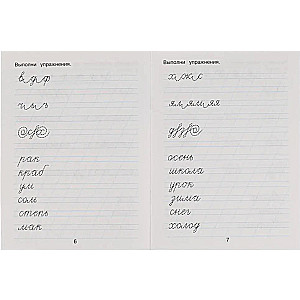 Выполни упражнения.
в д ф
ч ы ъ
рак
краб
ум
сом
степь
мак
6
Выполни упражнения.
х ж с
осень
школа
урок
зима
снег
холод
7